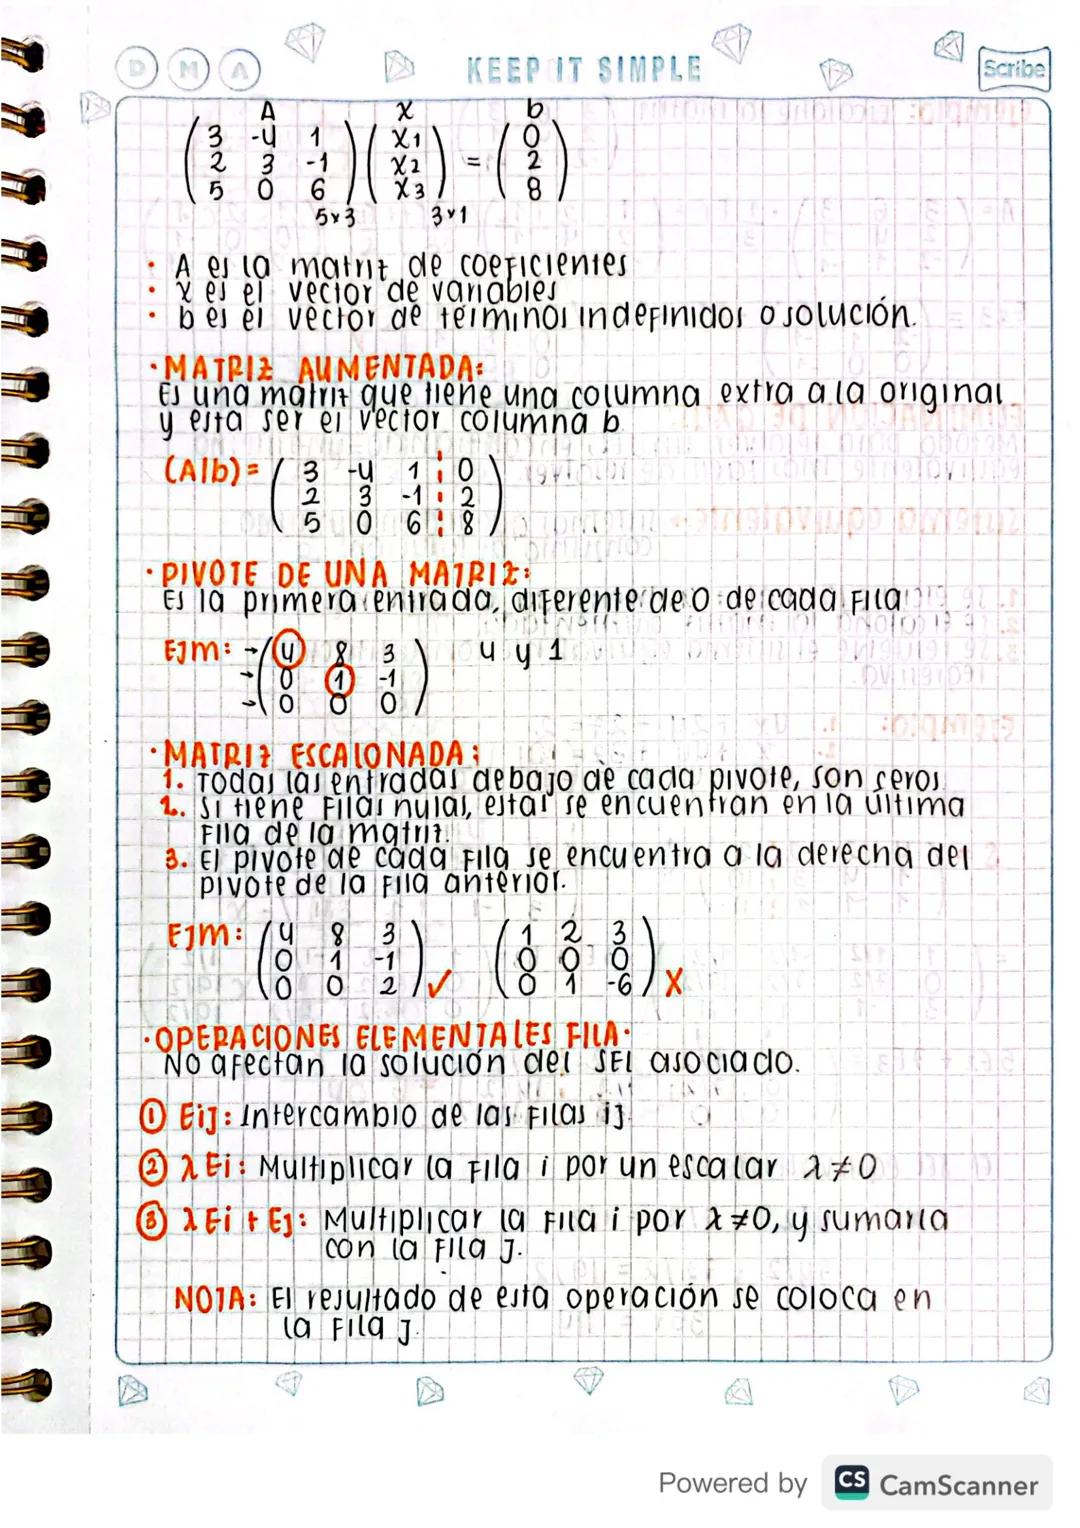 D M A KEEP IT SIMPLE Scribe
A x b
( 3 -4 1 ) ( x1 ) = ( 0 )
( 2 3 -1 ) ( x2 ) ( 2 )
( 5 0 6 ) ( x3 ) ( 8 )
5x3 3x1
· A es la matriz de coeficientes
· x es el vector de variables
· b es el vector de terminos indefinidos o solución.
· MATRIZ AUMENTADA:
Es una matriz que tiene una columna extra a la original
y esta ser el vector columna b
(A|b) = ( 3 -4 1 ¦ 0 )
( 2 3 -1 ¦ 2 )
( 5 0 6 ¦ 8 )
· PIVOTE DE UNA MATRIZ:
Es la primera entrada, diferente de 0 de cada fila
EJM: → ( 4 8 3 ) 4 y 1
→ ( 0 1 -1 )
→ ( 0 0 0 )
· MATRIZ ESCALONADA:
1. Todas las entradas debajo de cada pivote, son seros
2. Si tiene filas nulas, estas se encuentran en la última
fila de la matriz.
3. El pivote de cada fila se encuentra a la derecha del
pivote de la fila anterior.
EJM: ( 4 8 3 ) ( 1 2 3 )
( 0 1 -1 ) ( 0 0 0 )
( 0 0 2 ) ✓ ( 0 1 -6 ) X
· OPERACIONES ELEMENTALES FILA·
No afectan la solución del SEL asociado.
① Eij: Intercambio de las filas ij.
② λEi: Multiplicar la fila i por un escalar λ≠0
③ λEi + Ej: Multiplicar la fila i por λ≠0, y sumarla
con la fila j.
NOTA: El resultado de esta operación se coloca en
la fila j.
Powered by CS CamScanner